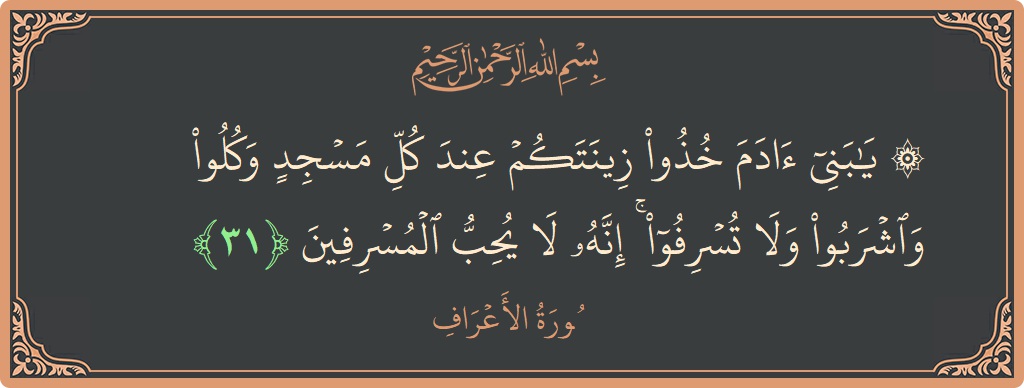 بِسْمِ اللهِ الرَّحْمٰنِ الرَّحِيْمِ
۞ يَـٰبَنِىٓ ءَادَمَ خُذُوا۟ زِينَتَكُمْ عِندَ كُلِّ مَسْجِدٍ وَكُلُوا۟
وَٱشْرَبُوا۟ وَلَا تُسْرِفُوٓا۟ ۚ إِنَّهُۥ لَا يُحِبُّ ٱلْمُسْرِفِينَ ﴿٣١﴾
سُورَةُ الأَعْرَافِ